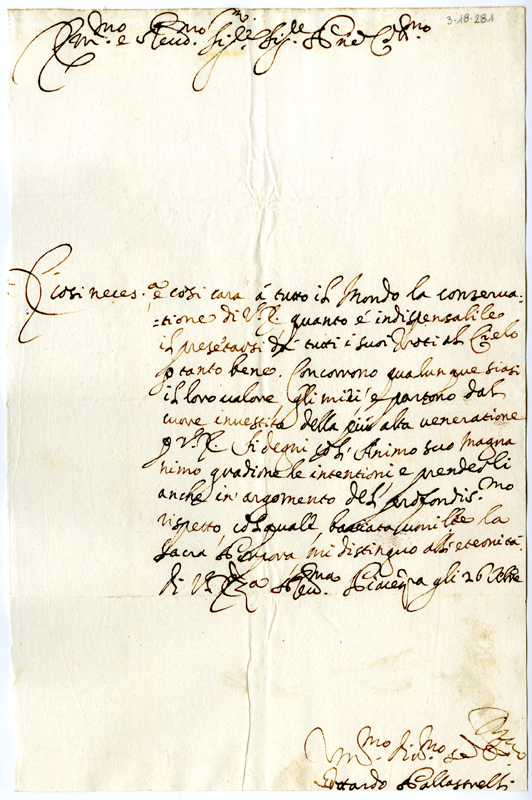 3-18-281
Em.mo e Reu.mo Sig.re Sig.re Pne
È così neces.a e così cara à tutto il Mondo la conserua-
-tione di V.E. quanto é indispensabile
il presētarsi da tutti i suoi Voti al Cielo
p tanto bene. Concorrono qualunque siasi
il loro ualore gli miei e partono dal
cuore inuestita della più alta ueneratione
p V.E. Si degni col Animo suo magna
nimo gradirne le intentioni e prenderli
anche in argomento del profondis.mo
rispetto col quale baciata umilte la
Sacra Porpora mi distinguo all eternità
di V. Reu.ma Piacenza gli 26 Xbre
Vm.mo di.mo se
Pallastrelli